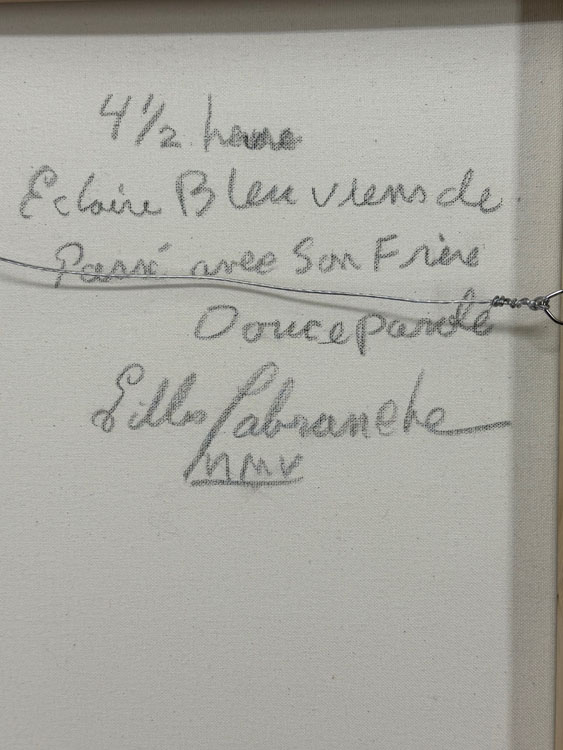 4 1/2 heure
Eclaire Bleu viens de
Passé avec Son Frère
Douce parole
Gilles Labranche
NMV